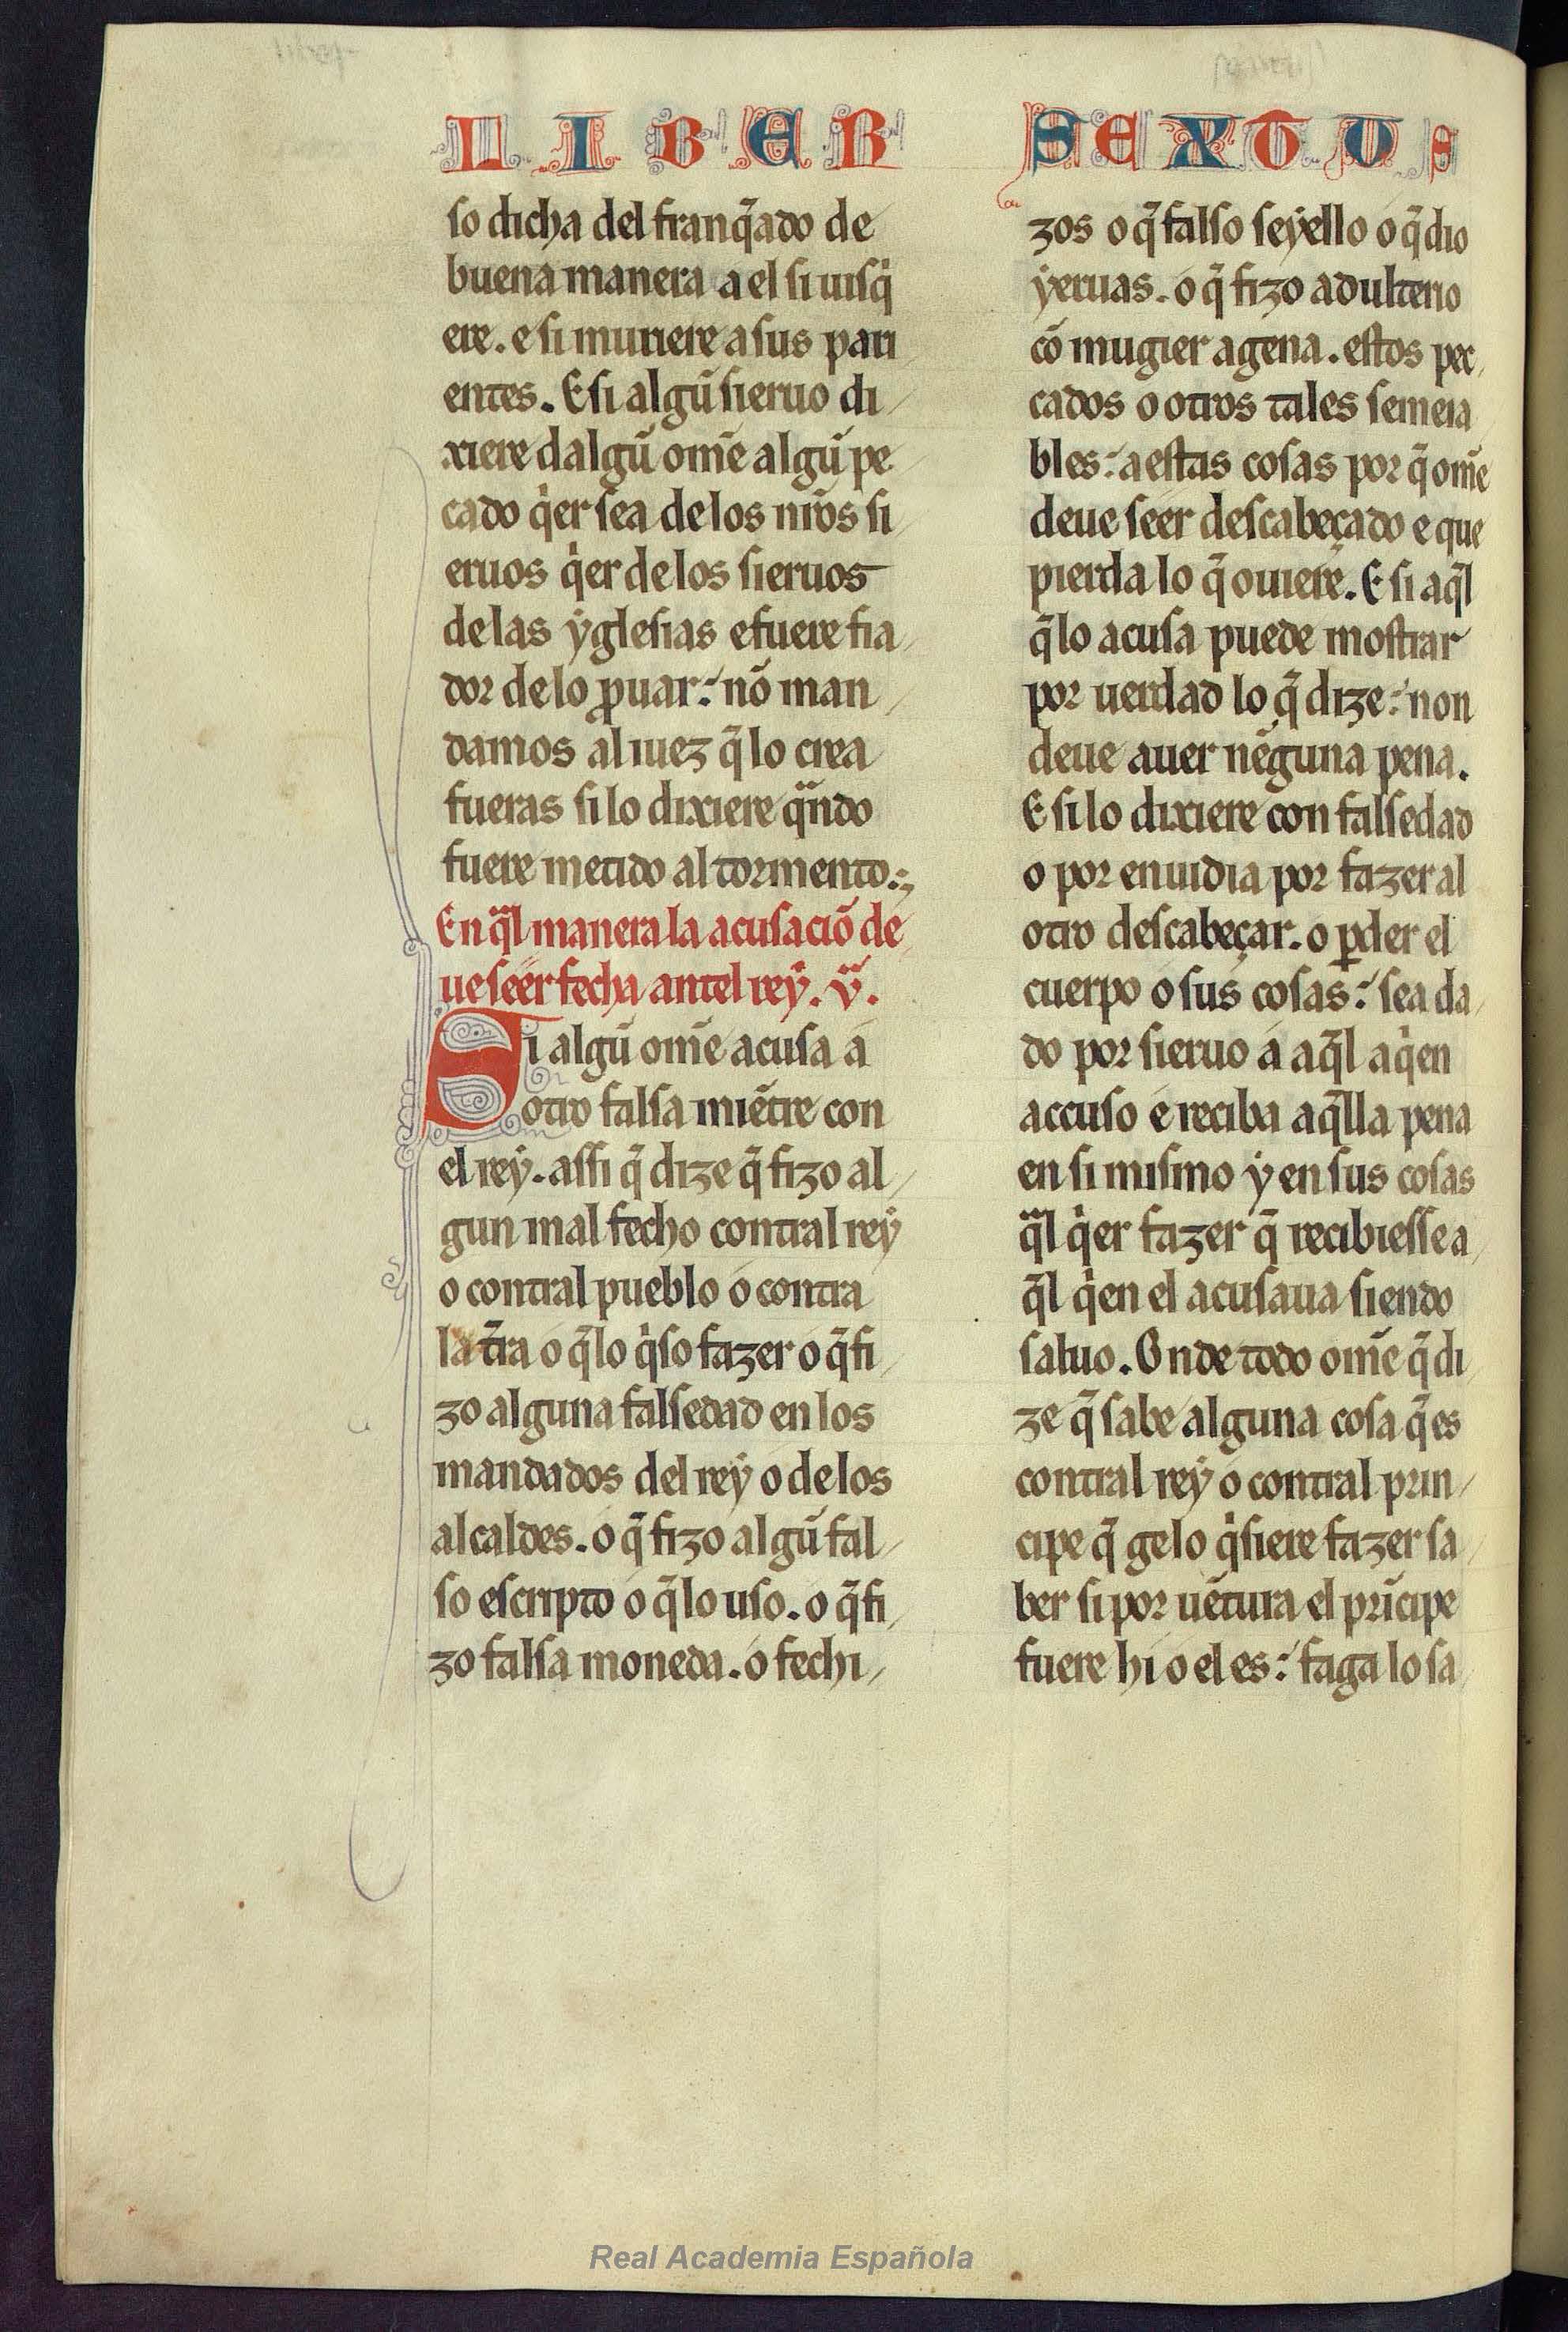 LIBER SEXTUS
so dicha del franq̃ado de
buena manera a el si uisq̇
ere. e si muriere a sus pari
entes. E si algũ sieruo di
xiere dalgũ om̃e algũ pe
cado q̇er sea de los nr̃os si
eruos q̇er de los sieruos
de las ẏglesias e fuere fia
dor de lo ꝓuar: nõ man
damos al iuez q̃ lo crea
fueras si lo dixiere qͣndo
fuere metido al tormento.
En qͣl manera la acusaciõ de
ue seer fecha antel reẏ. v̊.
Si algũ om̃e acusa a
otro falsa miẽtre con
el reẏ. assi q̃ dize q̃ fizo al
gun mal fecho contral reẏ
o contral pueblo o contra
la tr̃ra o q̃ lo q̇so fazer o q̃ fi
zo alguna falsedad en los
mandados del reẏ o de los
alcaldes. o q̃ fizo algũ fal
so escripto o q̃ lo uso. o q̃ fi
zo falsa moneda. o fechi
zos o q̃ falso seẏello o q̃ dio
ẏeruas. o q̃ fizo adulterio
cõ mugier agena. estos pec
cados o otros tales semeia
bles: a estas cosas por q̃ om̃e
deue seer descabeçado e que
pierda lo q̃ ouiere. E si aq̃l
q̃ lo acusa puede mostrar
por uerdad lo q̃ dize: non
deue auer nẽguna pena.
E si lo dixiere con falsedad
o por enuidia por fazer al
otro descabeçar. o ꝑder el
cuerpo o sus cosas: sea da
do por sieruo a aq̃l a q̇en
accuso e reciba aq̃lla pena
en si mismo ẏ en sus cosas
qͣl q̇er fazer q̃ recibiesse a
q̃l q̇en el acusaua siendo
saluo. Onde todo om̃e q̃ di
ze q̃ sabe alguna cosa q̃ es
contral reẏ o contral prin
cipe q̃ gelo q̇siere fazer sa
ber si por uẽtura el prĩcipe
fuere hi o el es: faga lo sa
Real Academia Española